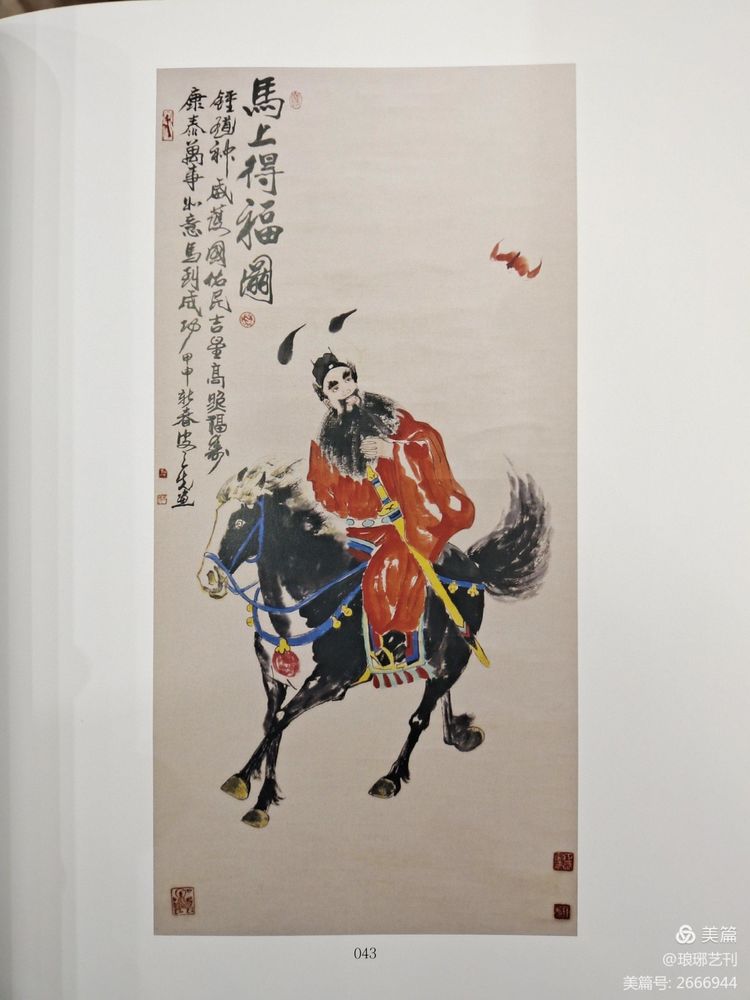 馬上得福圖
鍾馗神威護國佑民吉星高照福壽
康泰萬事如意馬到成功甲申新春
043
美篇
@琅琊艺刊
美篇号: 2666944